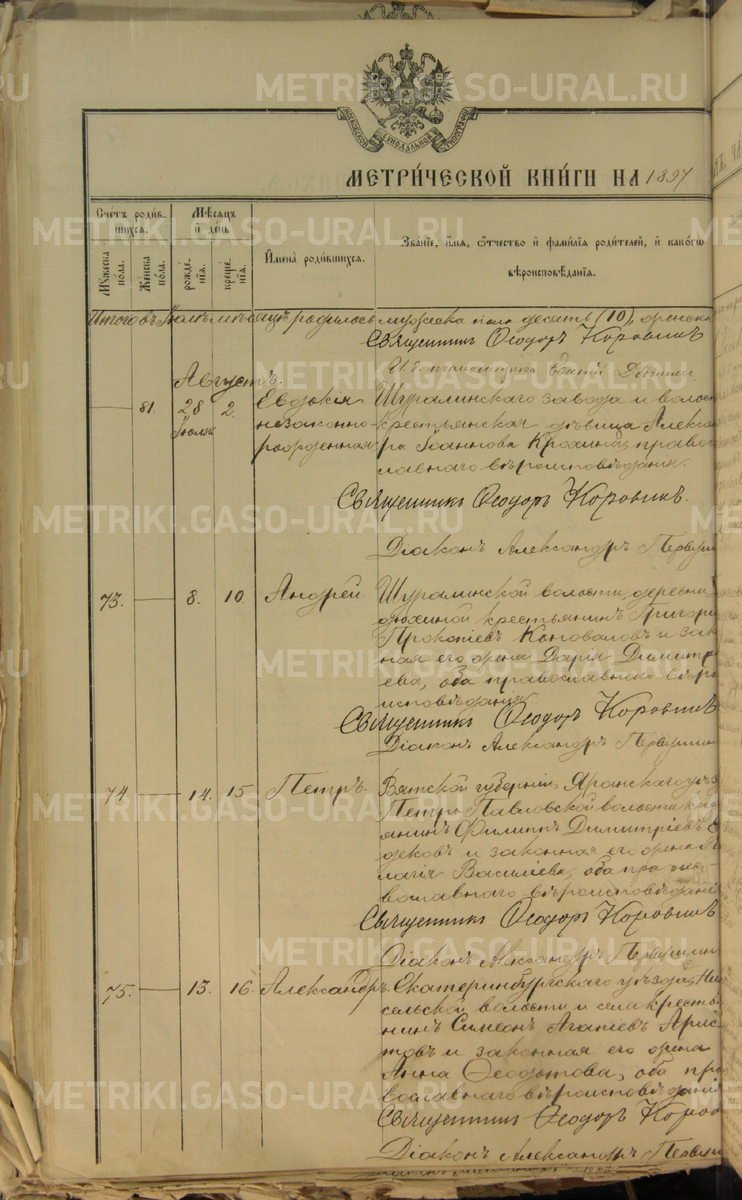 МОСКОВСКОЙ СѴНОДАЛЬНОЙ ТИПОГРАФІИ
МЕТРИ́ЧЕСКОЙ КНИ́ГИ НА 1897
Сче́тъ роди́в-
шихся.
Мѣ́сяцъ
и де́нь
Мꙋ́жеска
по́ла.
Же́нска
по́ла.
рожде́-
нїя.
креще́-
нїя.
И҆мена̀ роди́вшихся.
Зва́нїе, и҆́мя, ѻ҆́тчество и҆ фами́лїя роди́телей, и҆ како́гѡ
вѣроисповѣ́данїя.
Итого въ Іюлѣ мѣсяцѣ родилось мужеска пола десять (10), женска
Священникъ Ѳеодоръ Коровинъ
Августъ.
81. 28 Іюля 2. Евдокія Шуралинскаго завода и волост
незаконно- крестьянская дѣвица Алексан
рожденная ра Іоаннова Крохина, правос
лавнаго вѣроисповѣданія.
Священникъ Ѳеодоръ Коровинъ.
Діаконъ Александръ
73. — 8. 10. Андрей. Шуралинской волости, деревни
крестьянинъ Григорій
Прокопіевъ Коноваловъ и зак
ная его жена Дарія Димитрі
ева, оба православнаго вѣро
исповѣданія
Священникъ Ѳеодоръ Коровинъ
Діаконъ Александръ
74 — 14. 15. Петръ. Вятской губерніи, Яранскаго уѣз
Петро-Павловской волости кре
янинъ Филиппъ Димитріевъ
и законная его жена
лагія Васильева, оба пра
вославнаго вѣроисповѣданія
Священникъ Ѳеодоръ Коровинъ
Діаконъ Александръ
75. — 13. 16. Александръ. Екатеринбургскаго уѣзда,
сельской волости и села кресть
нинъ Симеонъ Агапіевъ Арис
товъ и законная его жена
Анна Ѳеодотова, оба пра
вославнаго вѣроисповѣданія
Священникъ Ѳеодоръ Коров
Діаконъ Александръ
METRIKI.GASO-URAL.RU